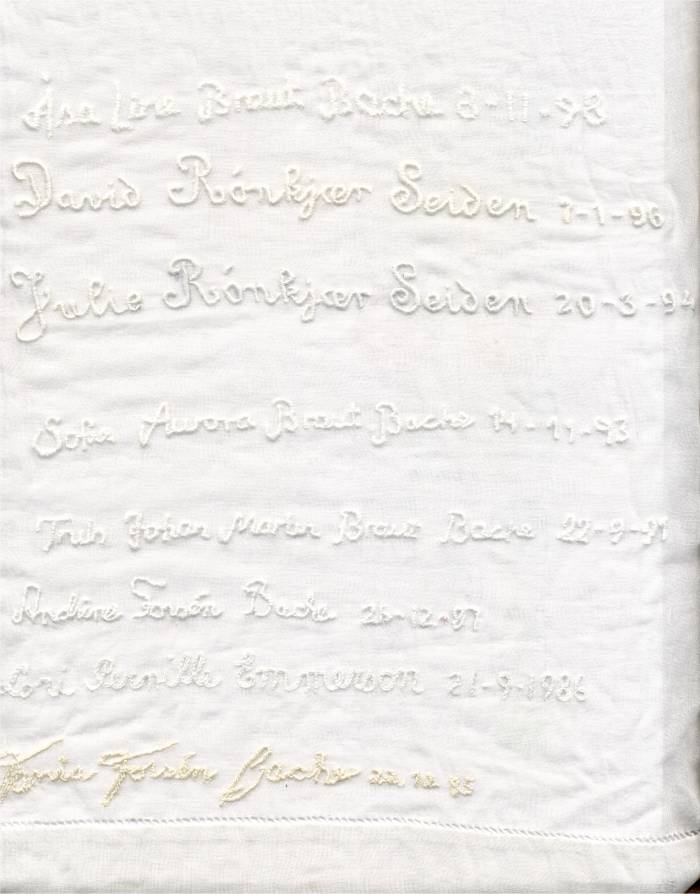 Åsa Line Braut Bache 8-11-98
David Rónkjær Seiden 7-1-96
Julie Rónkjær Seiden 20-3-94
Sofie Aurora Braut Bache 14-11-93
Johan Martin Braut Bache 22-9-91
Forsén Bache
Pernille Emmerson 21-9-1986
Forsén Bache